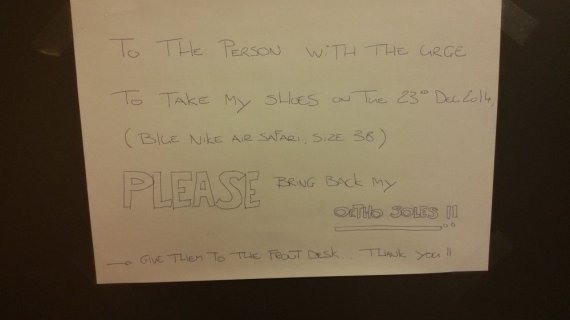 To THE PERSON WITH THE URGE
TO TAKE MY SHOES ON THE 23° DEC 2014,
(BLUE NIKE AIR SAFARI, SIZE 38)
PLEASE BRING BACK MY
ORTHO SOLES !!
→ GIVE THEM TO THE FRONT DESK... THANK YOU !!